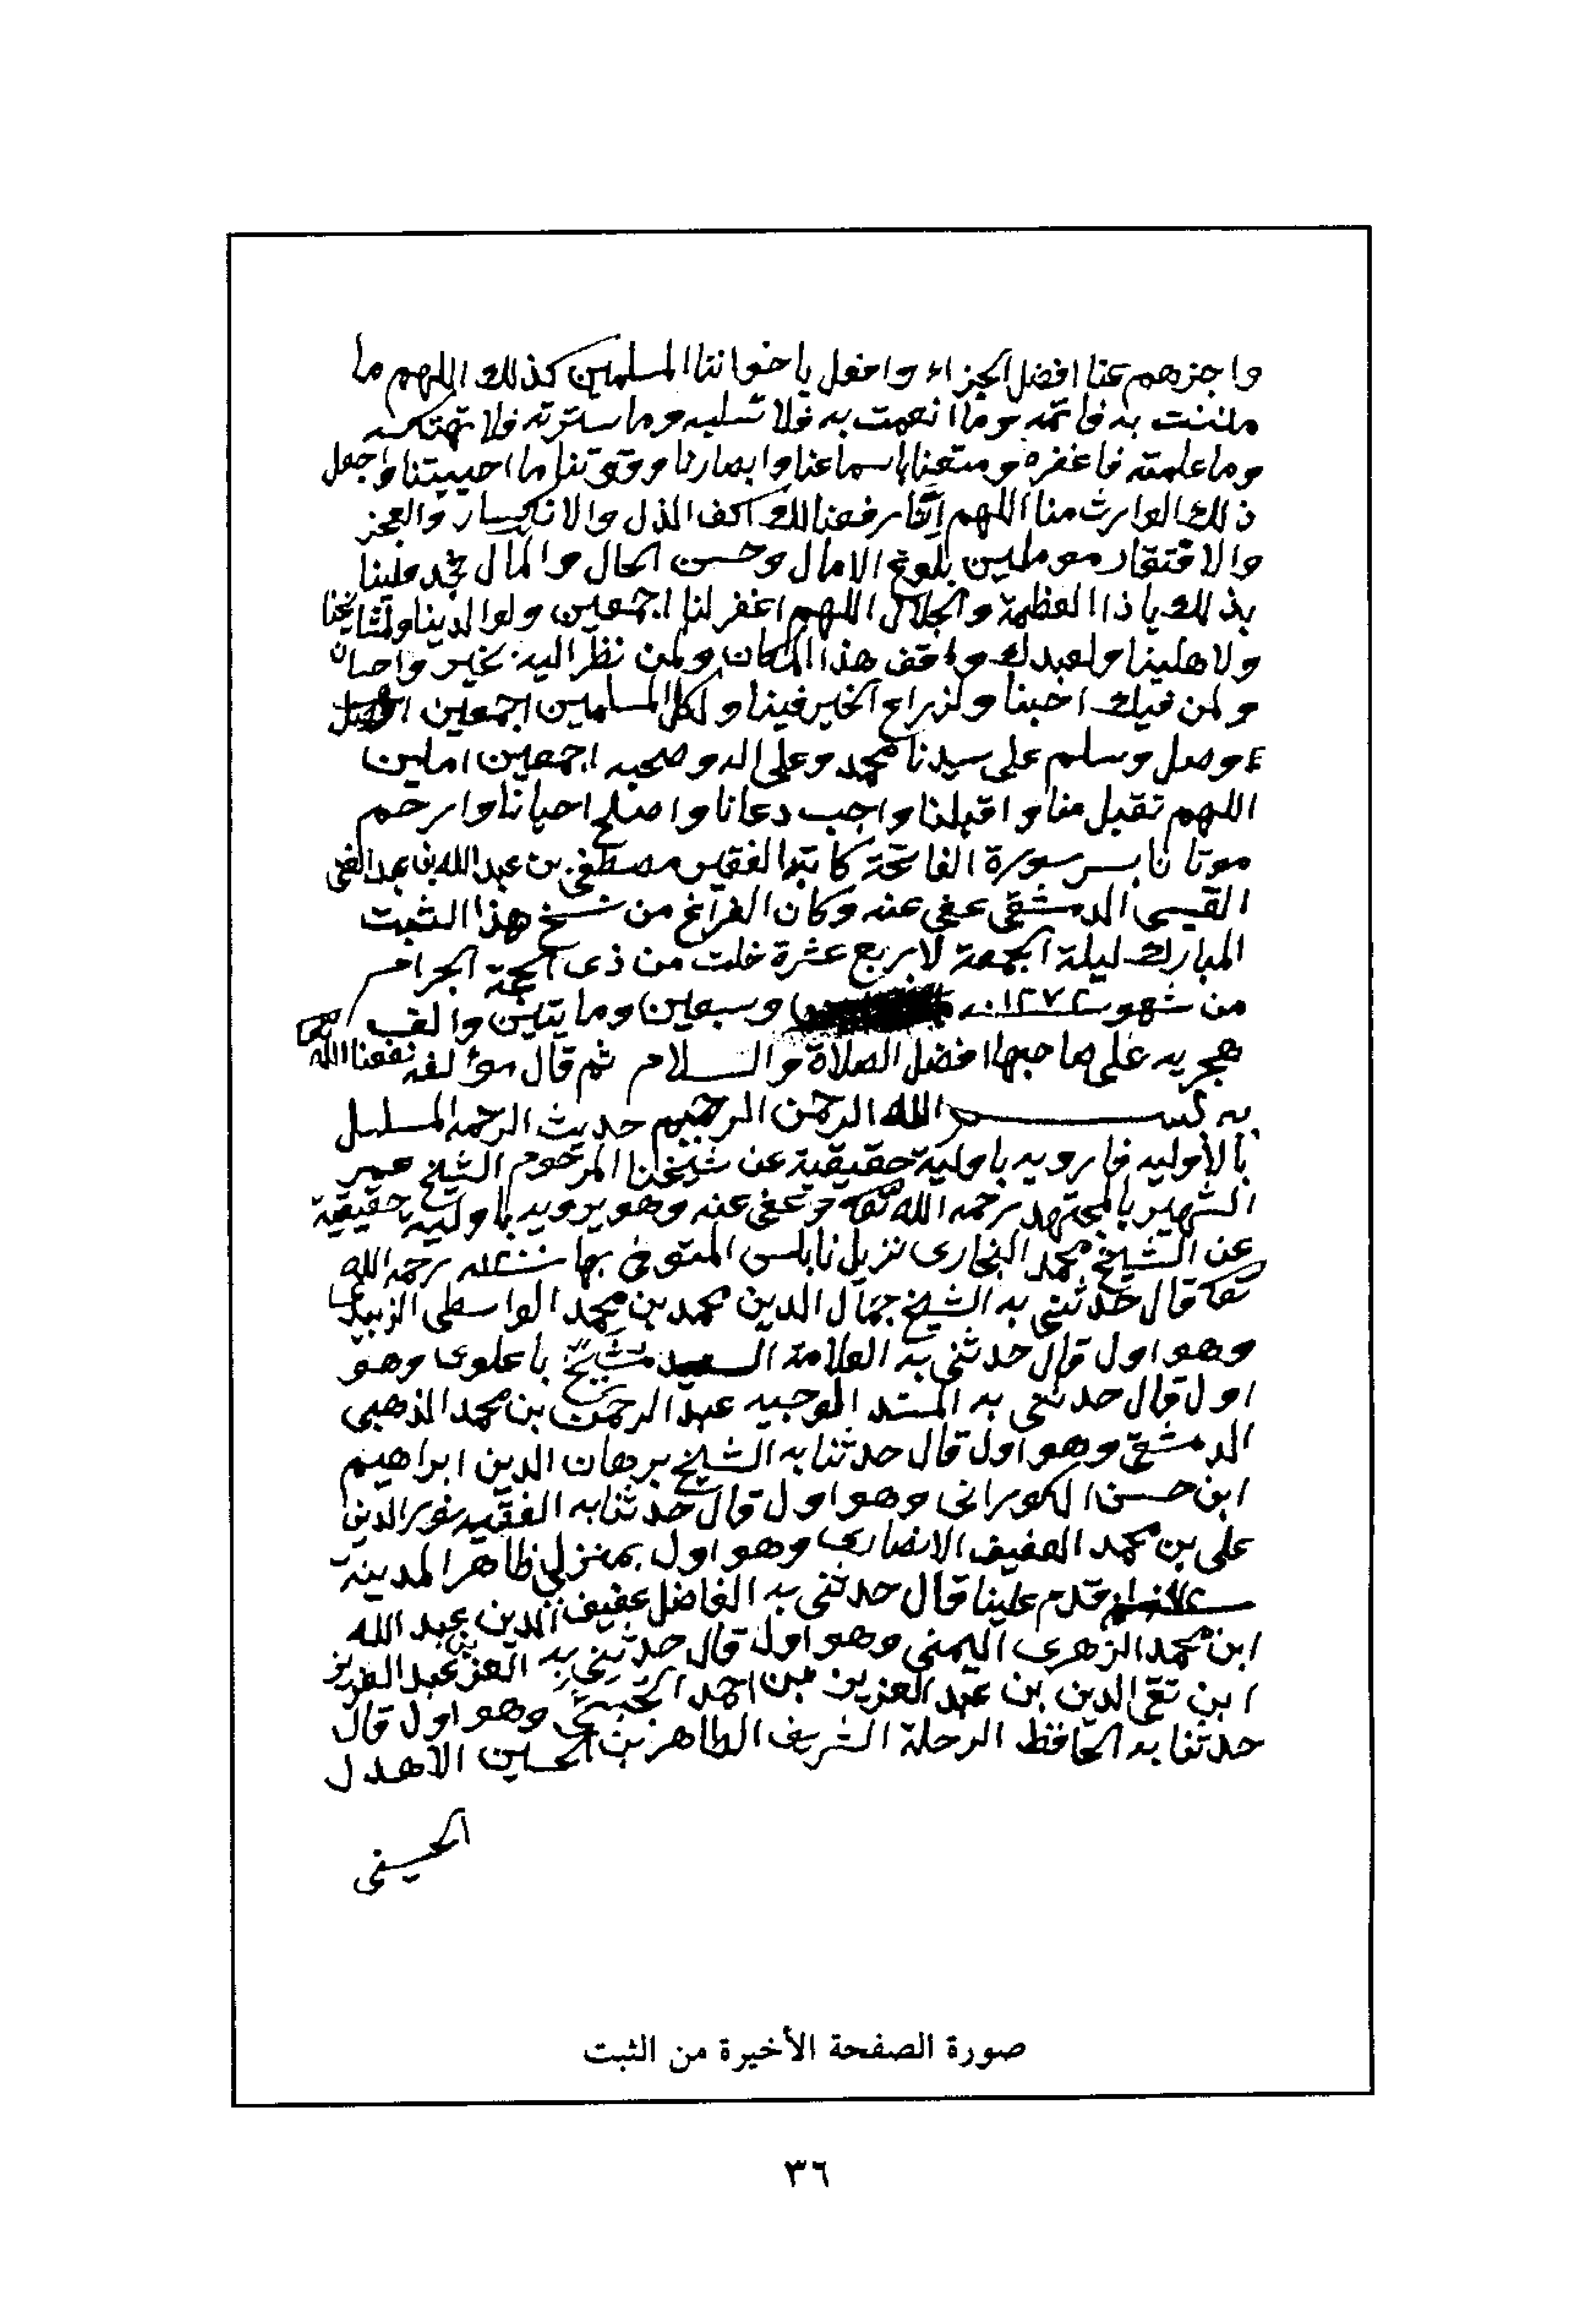 واجزهم عنا افضل الجزاء وافعل باخواننا المسلمين كذلك اللهم ما
مننت به فاتمه وما انعمت به فلا تسلبه وما سترته فلا تهتكه
وما علمته فاغفره ومتعنا باسماعنا وابصارنا وقوتنا ما احييتنا واجعل
ذلك الوارث منا اللهم انا رفعنا لك اكف الذل والانكسار والعجز
والافتقار موملين بلوغ الامال وحسن الحال والمال فجد علينا
بذلك ياذا العظمة والجلال اللهم اغفر لنا اجمعين ولوالدينا ولمشايخنا
ولاهلينا ولعبدك واقف هذا المكان ولمن نظر اليه بخير واحسان
ولمن فيك احبنا ولزراع الخير فينا ولكل المسلمين اجمعين
وصل وسلم على سيدنا محمد وعلى اله وصحبه اجمعين امين
اللهم تقبل منا واقبلنا واجب دعانا واصلح احيانا وارحم
موتانا بسر سورة الفاتحة كاتبه الفقير مصطفى بن عبد الله بن عبد الغني
القيسي الدمشقي عفي عنه وكان الفراغ من نسخ هذا الثبت
المبارك ليلة الجمعة لاربع عشرة خلت من ذي الحجة الحرام
من شهور سنة وسبعين ومايتين والف
هجريه على صاحبها افضل الصلاة والسلام ثم قال مؤلفه نفعنا الله
به بسم الله الرحمن الرحيم حديث الرحمة المسلسل
بالأوليه فارويه باولية حقيقية عن شيخنا المرحوم الشيخ عمر
الشهير بالمجتهد رحمه الله وعفى عنه وهو يرويه باولية حقيقية
عن الشيخ محمد البخاري نزيل نابلس المتوفى بها رحمه الله
قال حدثني به الشيخ جمال الدين محمد بن محمد الواسطي الزبيدي
وهو اول قال حدثني به العلامة السيد مشيخ باعلوي وهو
اول قال حدثني به المسند الوجيه عبد الرحمن بن محمد الذهبي
الدمشقي وهو اول قال حدثنا به الشيخ برهان الدين ابراهيم
ابن حسن الكوراني وهو اول قال حدثنا به الفقيه نور الدين
علي بن محمد العفيف الانصاري وهو اول بمنزلي ظاهر المدينة
قدم علينا قال حدثني به الفاضل عفيف الدين عبد الله
ابن محمد الزهري اليمني وهو اول قال حدثني به العز عبد العزيز
ابن تقي الدين بن عبد العزيز بن احمد الحبيشي وهو اول قال
حدثنا به الحافظ الرحلة الشريف الطاهر بن الحسين الاهدل
الحسيني
صورة الصفحة الأخيرة من الثبت
٣٦